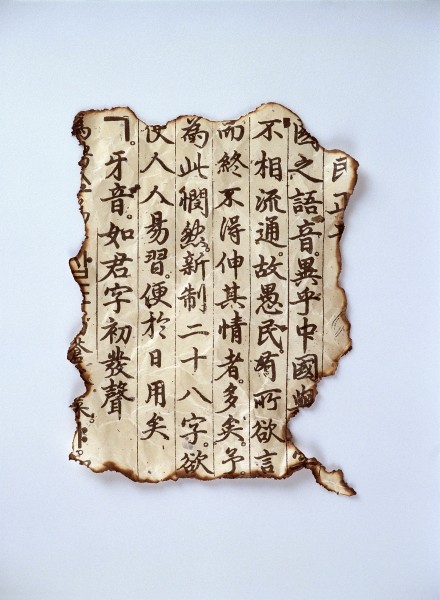 民正
國之語音。異乎中國
不相流通。故愚民。有所欲言
而終不得伸其情者。多矣。予
為此憫然。新制二十八字。欲
使人人易習。便於日用矣
ㄱ。牙音。如君字初發聲